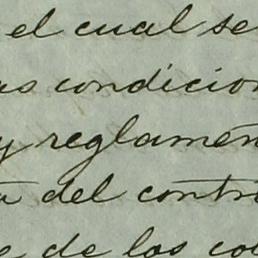 el cual se
as condicion
y reglamen
a del contr
e de los co